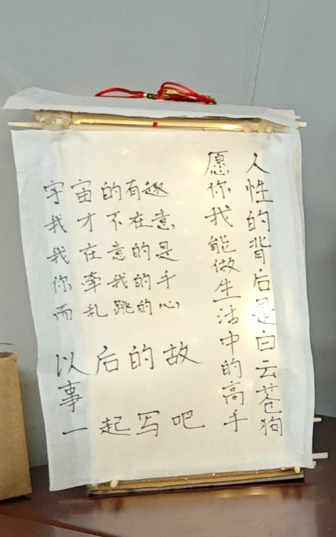 人性的背后是白云苍狗
愿你我能做生活中的高手
宇宙的有趣
我才不在意
我在意的是
你牵我的手
而乱跳的心
以后的故
事
一起写吧